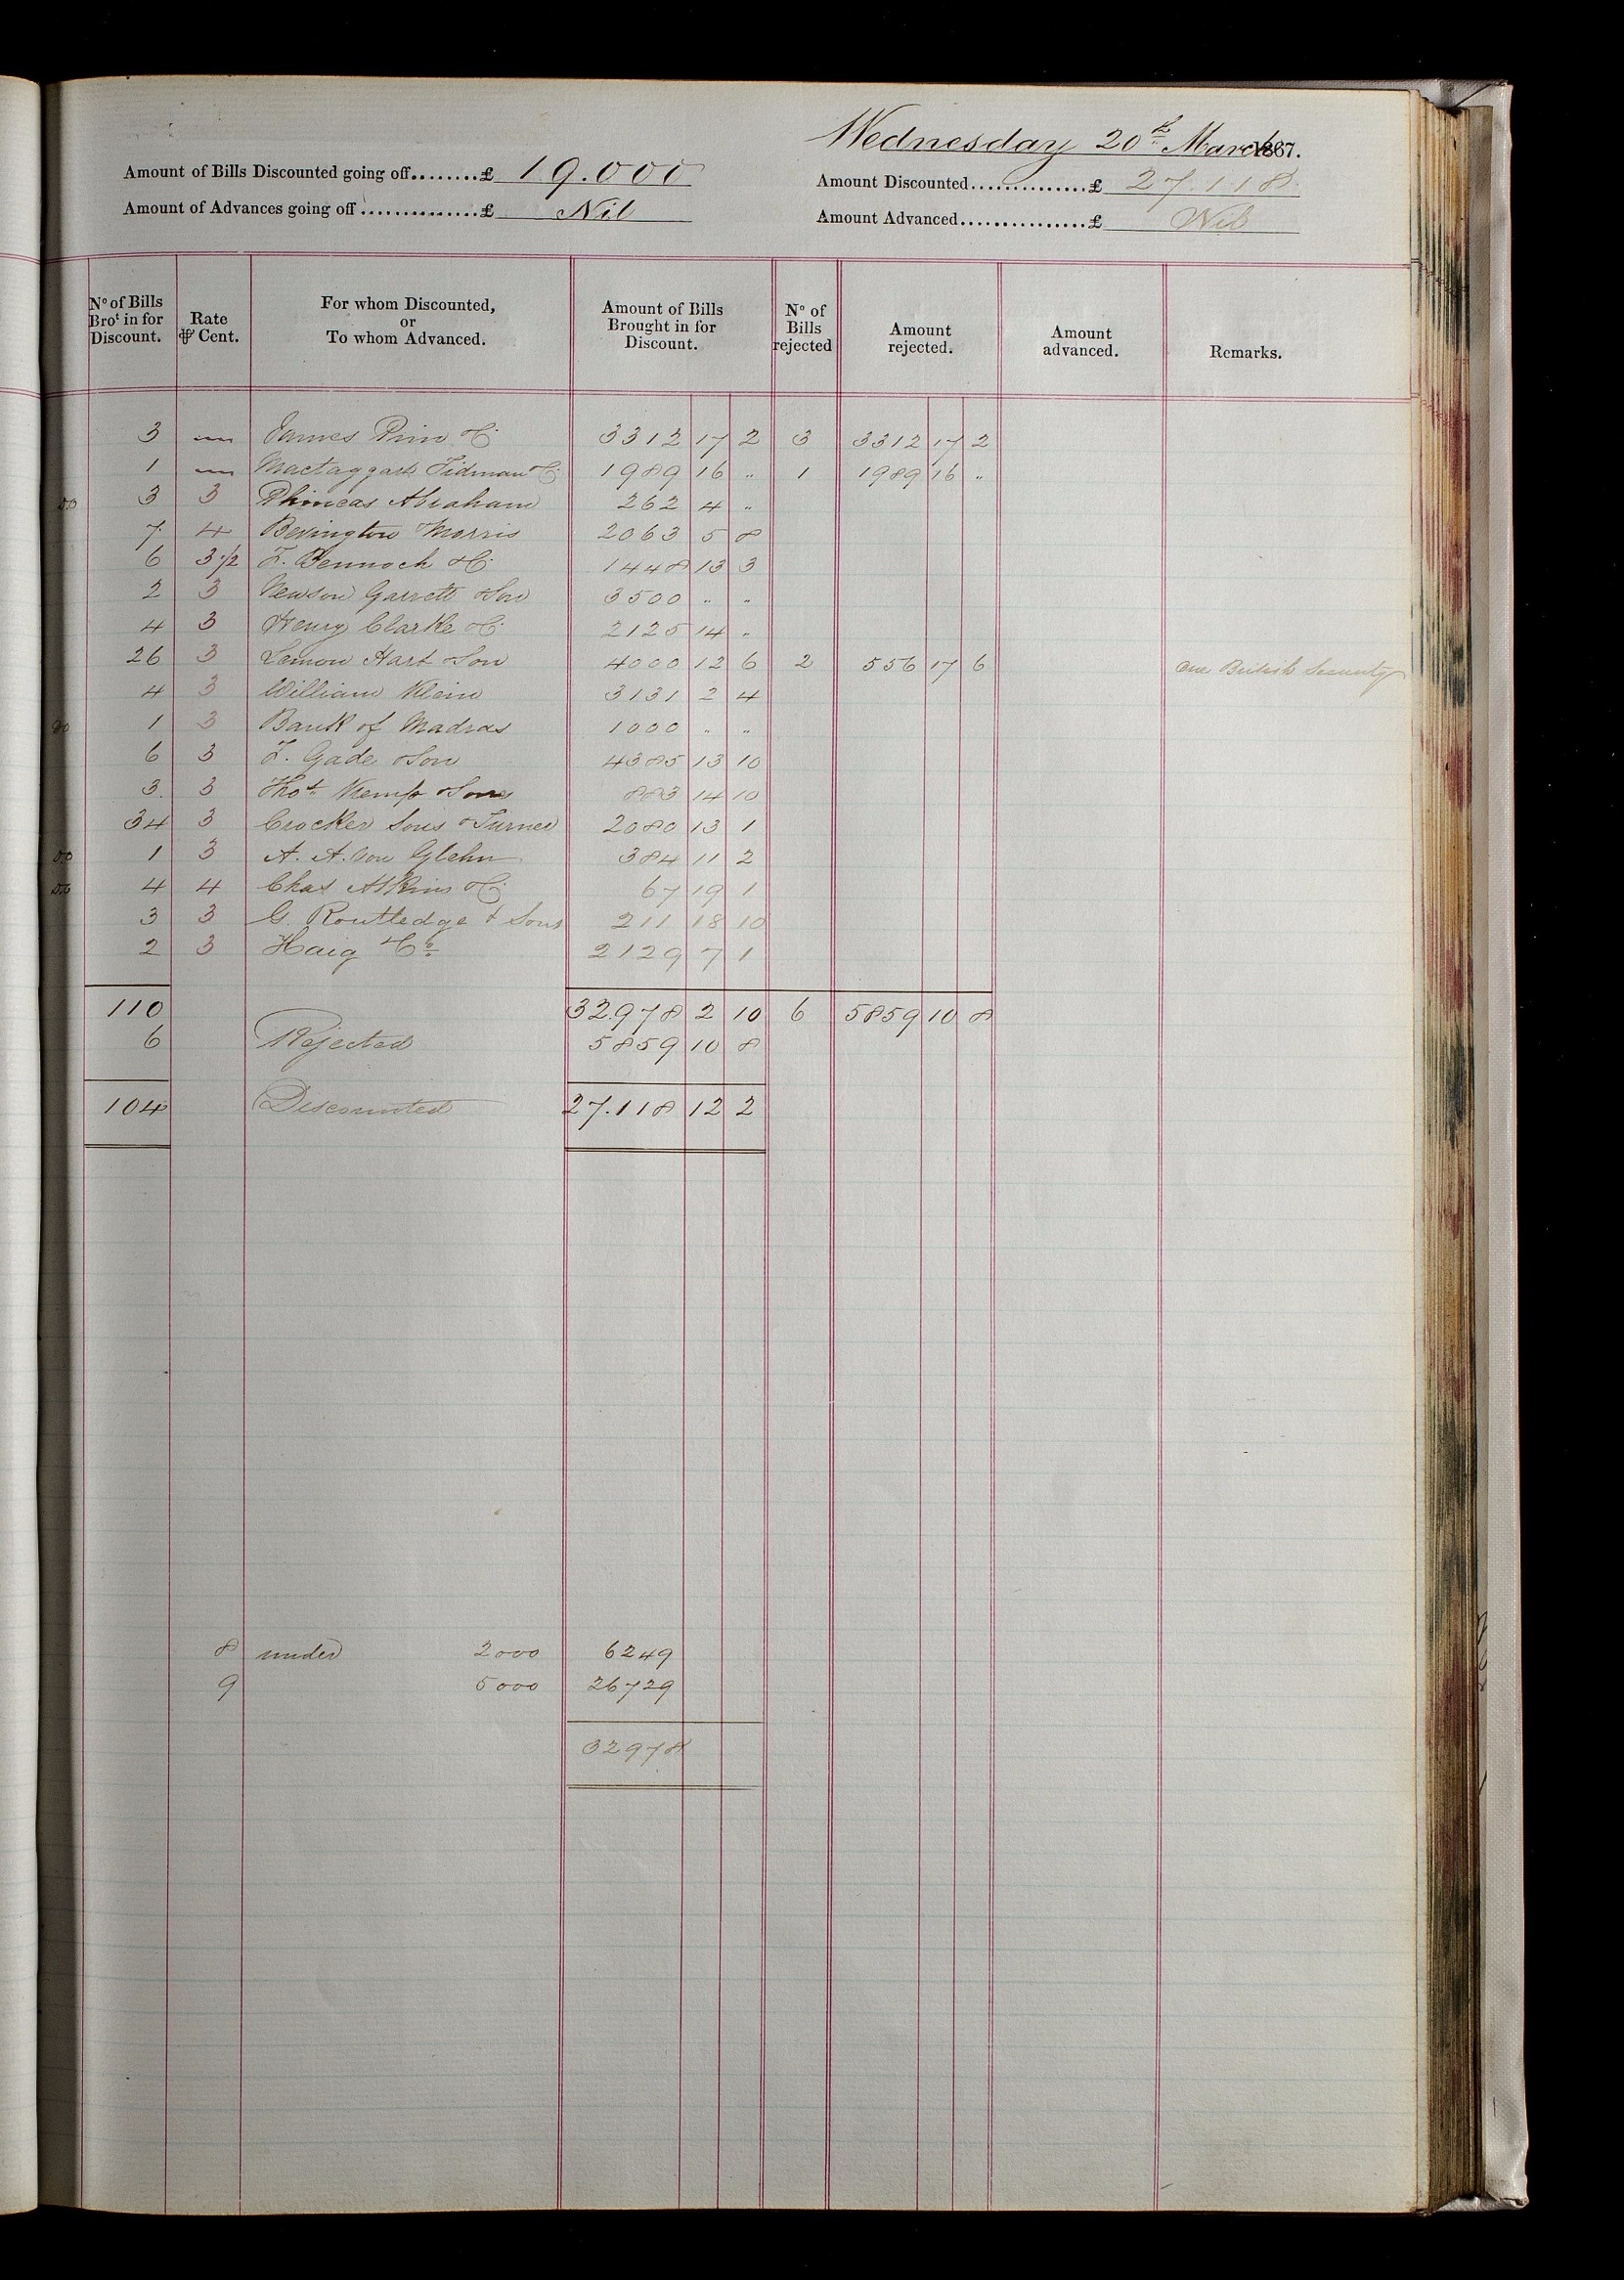 Wednesday 20th March 1867.
Amount of Bills Discounted going off........£ 19.000
Amount Discounted...............£ 27.118
Amount of Advances going off...............£ Nil
Amount Advanced................£ Nil
No of Bills Brot in for Discount. Rate ⅌ Cent. For whom Discounted, or To whom Advanced. Amount of Bills Brought in for Discount. No of Bills rejected Amount rejected. Amount advanced. Remarks.
3 James &Co 3312 17 2 3 3312 17 2
1 Mactaggart Tidman &Co 1989 16 " 1 1989 16 "
3 3 Phineas Abraham 262 4 "
7 4 Bevington & Morris 2063 5 8
6 3 1/2 F. Bennoch &Co 1448 13 3
2 3 Newson Garrett & Son 3500 " "
4 3 Henry Clarke &Co 2125 14 "
26 3 Lemon Hart & Son 4000 12 6 2 556 17 6 One British Security
4 3 William Klein 3131 2 4
1 3 Bank of Madras 1000 " "
6 3 F. Gade & Son 4385 13 10
3 3 Thos Kemp & Sons 883 14 10
34 3 Crocker Sons & Turner 2080 13 1
1 3 A. A. von Glehn 384 11 2
4 4 Chas Atkins &Co 67 19 1
3 3 G. Routledge & Sons 211 18 10
2 3 Haig & Co 2129 7 1
110 32.978 2 10 6 5859 10 8
6 Rejected 5859 10 8
104 Discounted 27.118 12 2
8 under 2000 6249
9 5000 26729
32978